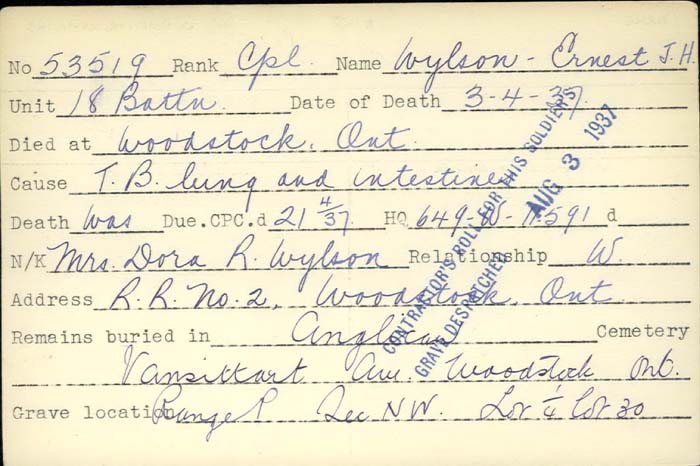 No 53519 Rank Cpl. Name Wylson - Ernest J.H.
Unit 18 Battn. Date of Death 3-4-37.
Died at Woodstock, Ont.
Cause T.B. lung and intestines
Death was Due.CPC.d 21 4/37 HQ 649-W-11591 d
N/K Mrs. Dora R. Wylson Relationship W.
Address R.R. No. 2, Woodstock, Ont.
Remains buried in Anglican Cemetery
Vansittart Ave. Woodstock Ont.
Grave location Range P Sec NW. Lot 30
CONTRACTOR'S ROLL FOR THIS SOLDIERS
GRAVE DESPATCHED
AUG 3 1937